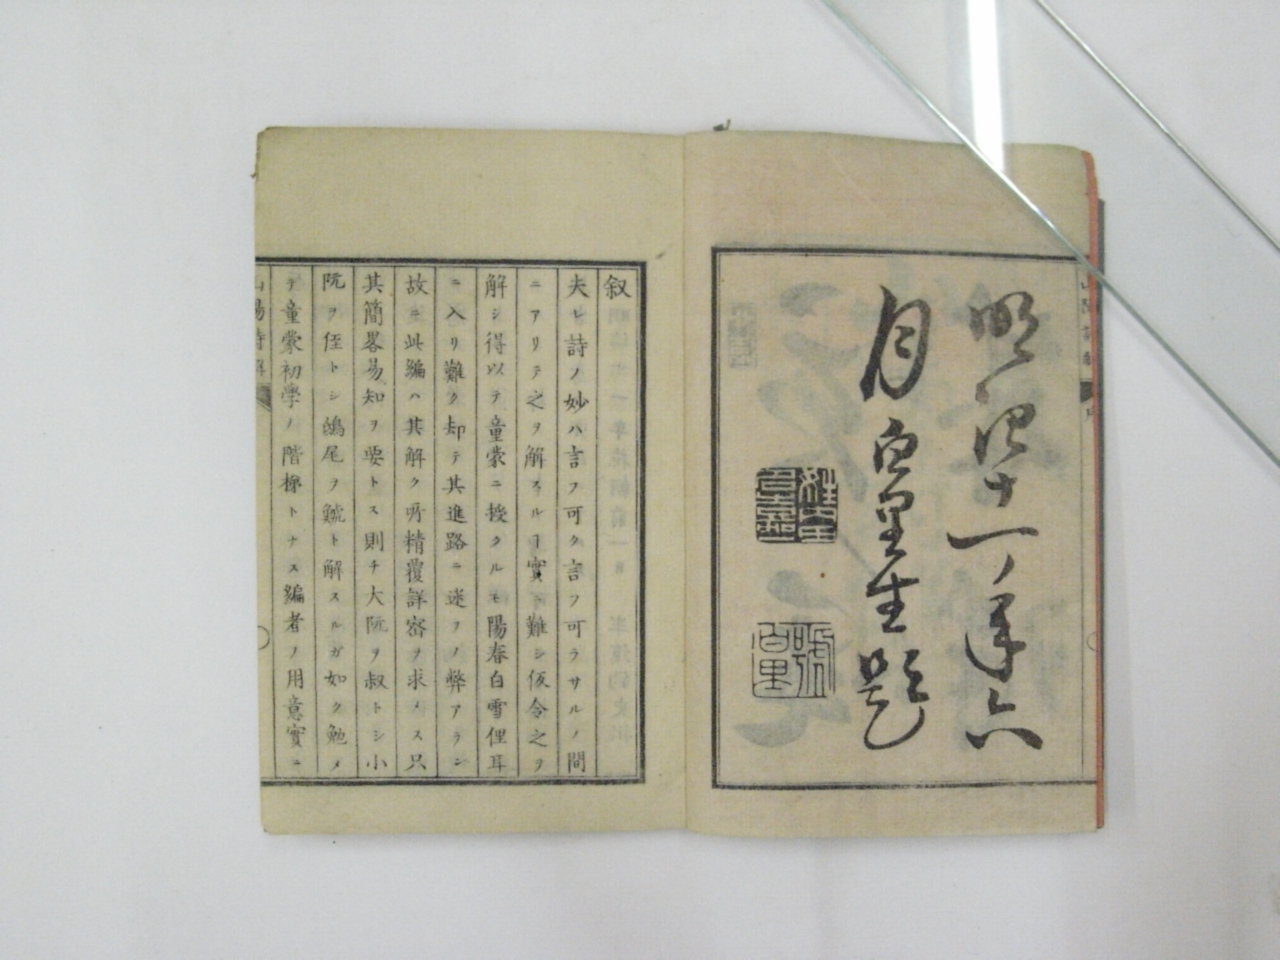 明治十一年六
月百里生題
叙
夫レ詩ノ妙ハ言フ可ク言フ可ラサルノ間
ニアリテ之ヲ解スルヿ實ニ難シ仮令之ヲ
解シ得以テ童蒙ニ授クルモ陽春白雪俚耳
ニ入リ難ク却テ其進路ニ迷フノ弊アラン
故ニ此編ハ其解ク所精覆詳密ヲ求メス只
其簡畧易知ヲ要トス則チ大阮ヲ叔トシ小
阮ヲ侄トシ鴟尾ヲ鯱ト解スルガ如ク勉メ
テ童蒙初学ノ階梯トナス編者ノ用意實ニ
山陽詩解